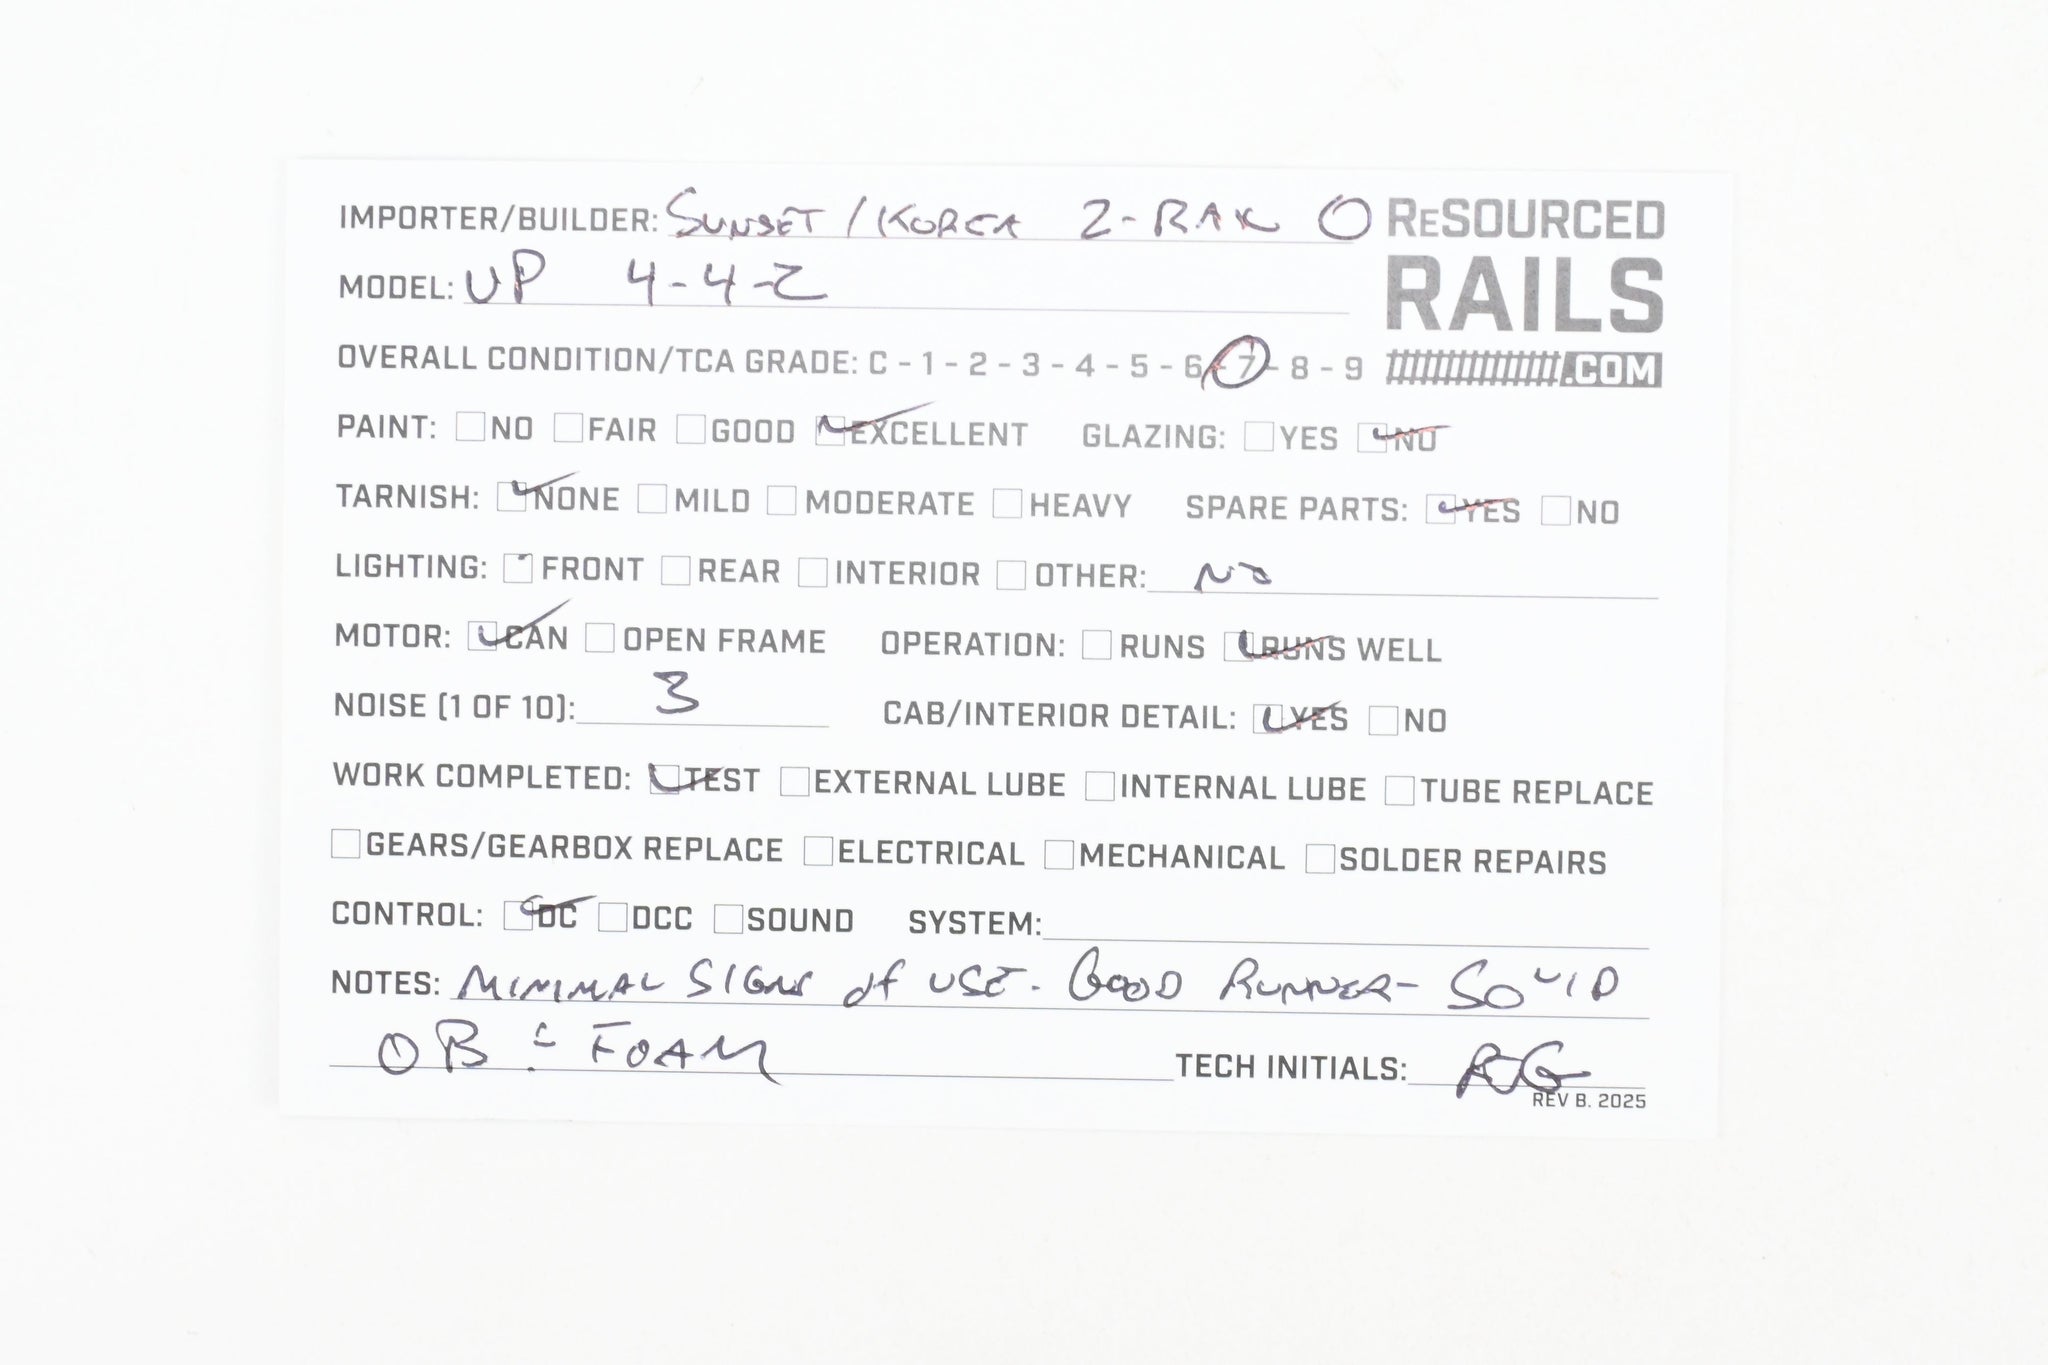 IMPORTER/BUILDER: SUNSET / KOREA 2-RAIL O
ReSOURCED
RAILS
.COM
MODEL: UP 4-4-2
OVERALL CONDITION/TCA GRADE: C - 1 - 2 - 3 - 4 - 5 - 6 - 7 - 8 - 9
PAINT: NO FAIR GOOD EXCELLENT GLAZING: YES NO
TARNISH: NONE MILD MODERATE HEAVY SPARE PARTS: YES NO
LIGHTING: FRONT REAR INTERIOR OTHER: NO
MOTOR: CAN OPEN FRAME OPERATION: RUNS RUNS WELL
NOISE (1 OF 10): 3 CAB/INTERIOR DETAIL: YES NO
WORK COMPLETED: TEST EXTERNAL LUBE INTERNAL LUBE TUBE REPLACE
GEARS/GEARBOX REPLACE ELECTRICAL MECHANICAL SOLDER REPAIRS
CONTROL: DC DCC SOUND SYSTEM:
NOTES: MINIMAL SIGNS of USE. GOOD RUNNER- SOLID
OB & FOAM TECH INITIALS:
REV B. 2025